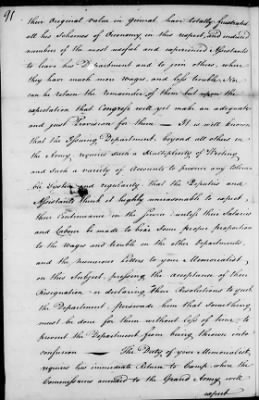 91
their original value in general have totally frustrated
all his Schemes of Oeconomy in this respect, and induced
numbers of the most useful and experienced Assistants
to leave his Department and to join others, where
they have much more Wages, and less trouble. Nor
can he retain the remainder of them but upon the
expectation that Congress will yet make an adequate
and just Provision for them — It is well known
that the Issuing Department, beyond all others in
the Army, requires such a Multiplicity of Writing
and such a variety of Accounts to procure any
System and regularity, that the Deputies and
Assistants think it highly unreasonable to expect
their Continuance in the Service unless their Salaries
and Labour be made to bear some proper proportion
to the Wages and trouble in the other Departments,
and the numerous Letters to your Memorialist,
on this Subject, pressing the acceptance of their
Resignation or declaring their Resolutions to quit
the Department, persuade him that something
must be done for them without loss of time, to
prevent the Department from being thrown into
confusion — The Duty of your Memorialist,
requires his immediate Return to Camp where the
Commissaries annexed to the Grand Army will
expect